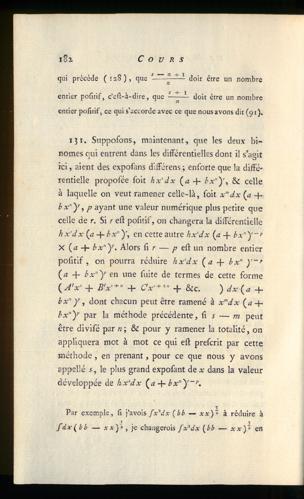 182 COURS
qui précède (128), que (s — n + 1)/n doit être un nombre
entier positif, c'est-à-dire, que (s + 1)/n doit être un nombre
entier positif, ce qui s'accorde avec ce que nous avons dit (91).
131. Supposons, maintenant, que les deux bi-
nomes qui entrent dans les différentielles dont il s'agit
ici, aient des exposans différens; ensorte que la diffé-
rentielle proposée soit hxˢdx (a + bxⁿ)ʳ, & celle
à laquelle on veut ramener celle-là, soit xᵐdx (a +
bxⁿ)ᵖ, p ayant une valeur numérique plus petite que
celle de r. Si r est positif, on changera la différentielle
hxˢdx (a + bxⁿ)ʳ, en cette autre hxˢdx (a + bxⁿ)ʳ⁻ᵖ
× (a + bxⁿ)ᵖ. Alors si r — p est un nombre entier
positif, on pourra réduire hxˢdx (a + bxⁿ)ʳ⁻ᵖ
(a + bxⁿ)ᵖ en une suite de termes de cette forme
+ &c. ) dx (a +
bxⁿ)ᵖ, dont chacun peut être ramené à xᵐdx (a +
bxⁿ)ᵖ par la méthode précédente, si s — m peut
être divisé par n; & pour y ramener la totalité, on
appliquera mot à mot ce qui est prescrit par cette
méthode, en prenant, pour ce que nous y avons
appellé s, le plus grand exposant de x dans la valeur
développée de hxˢdx (a + bxⁿ)ʳ⁻ᵖ.
Par exemple, si j'avois à réduire à
je changerois en